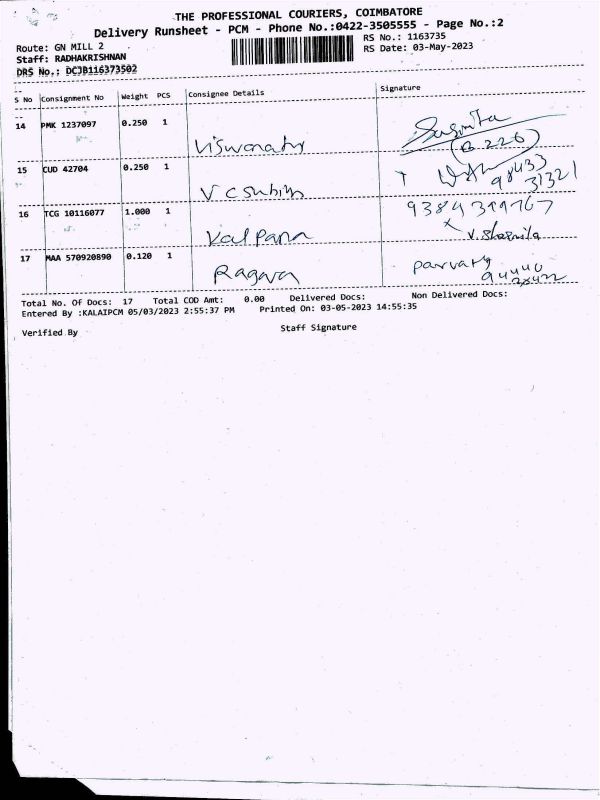 THE PROFESSIONAL COURIERS, COIMBATORE
Delivery Runsheet - PCM - Phone No.:0422-3505555 - Page No.:2
Route: GN MILL 2
RS No.: 1163735
Staff: RADHAKRISHNAN
RS Date: 03-May-2023
DRS No.: DCJB116373502
S No Consignment No Weight PCS Consignee Details Signature
14 PMK 1237097 0.250 1 Viswonath Sasmita
(B 226)
15 CUD 42704 0.250 1 V C Subin 98433
31321
16 TCG 10116077 1.000 1 Kalpana 9384399767
x V. Sharmila
17 MAA 570920890 0.120 1 Ragava parvathy
94440
Total No. Of Docs: 17 Total COD Amt: 0.00 Delivered Docs: Non Delivered Docs:
Entered By :KALAIPCM 05/03/2023 2:55:37 PM Printed On: 03-05-2023 14:55:35
Verified By Staff Signature